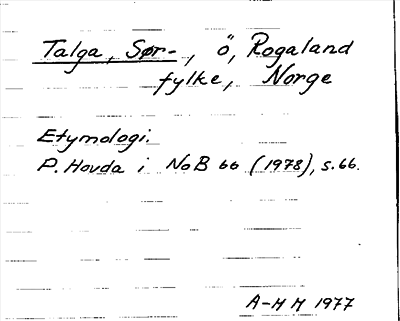 Talga, Sør-, ö, Rogaland
fylke, Norge
Etymologi.
P. Hovda i NoB 66 (1978), s. 66.
A-H H 1977